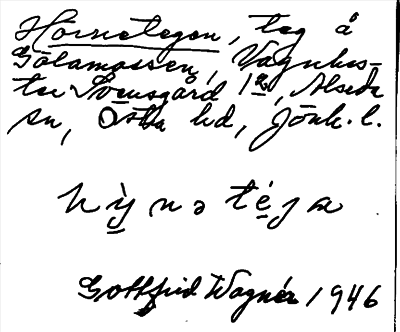 Hörnetegen, teg å
Götamossen, Vagnhes-
ter Svensgård 1 2, Alseda
sn, Östra hd, Jönk. l.
h ỳ n ə t é j a
Gottfrid Wagnér 1946